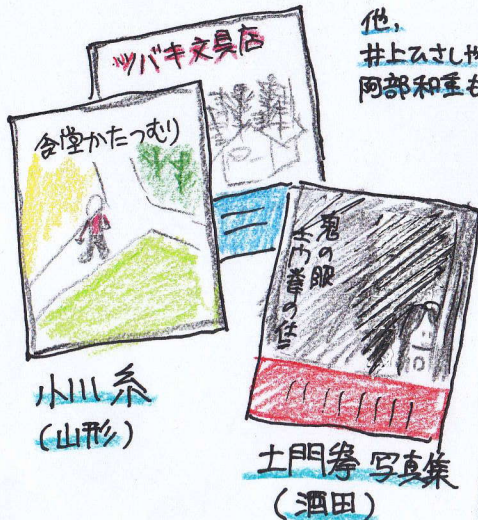 他、
井上ひさしや
阿部和重も
ツバキ文具店
食堂かたつむり
鬼の眼
土門拳の仕
小川糸
(山形)
土門拳 写真集
(酒田)